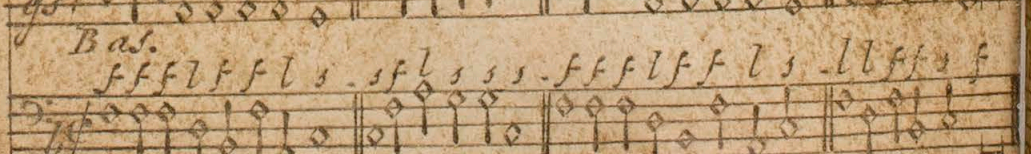 Bas.
f f f l f f l s . s f l s s s . f f f l f f l s . l l f f s f